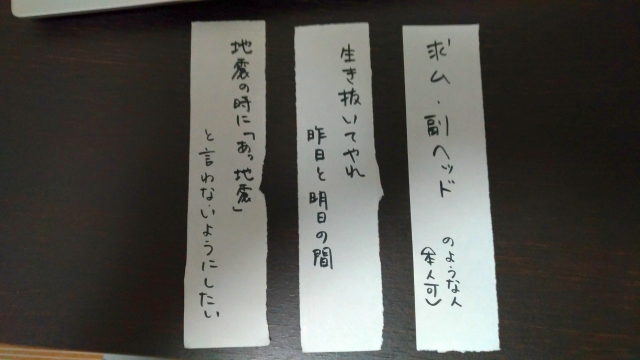 求ム・副ヘッド
のような人
(本人可)
生き抜いてやれ
昨日と明日の間
地震の時に「あっ地震」
と言わないようにしたい